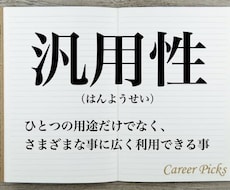 汎用性
（はんようせい）
ひとつの用途だけでなく、
さまざまな事に広く利用できる事
Career Picks